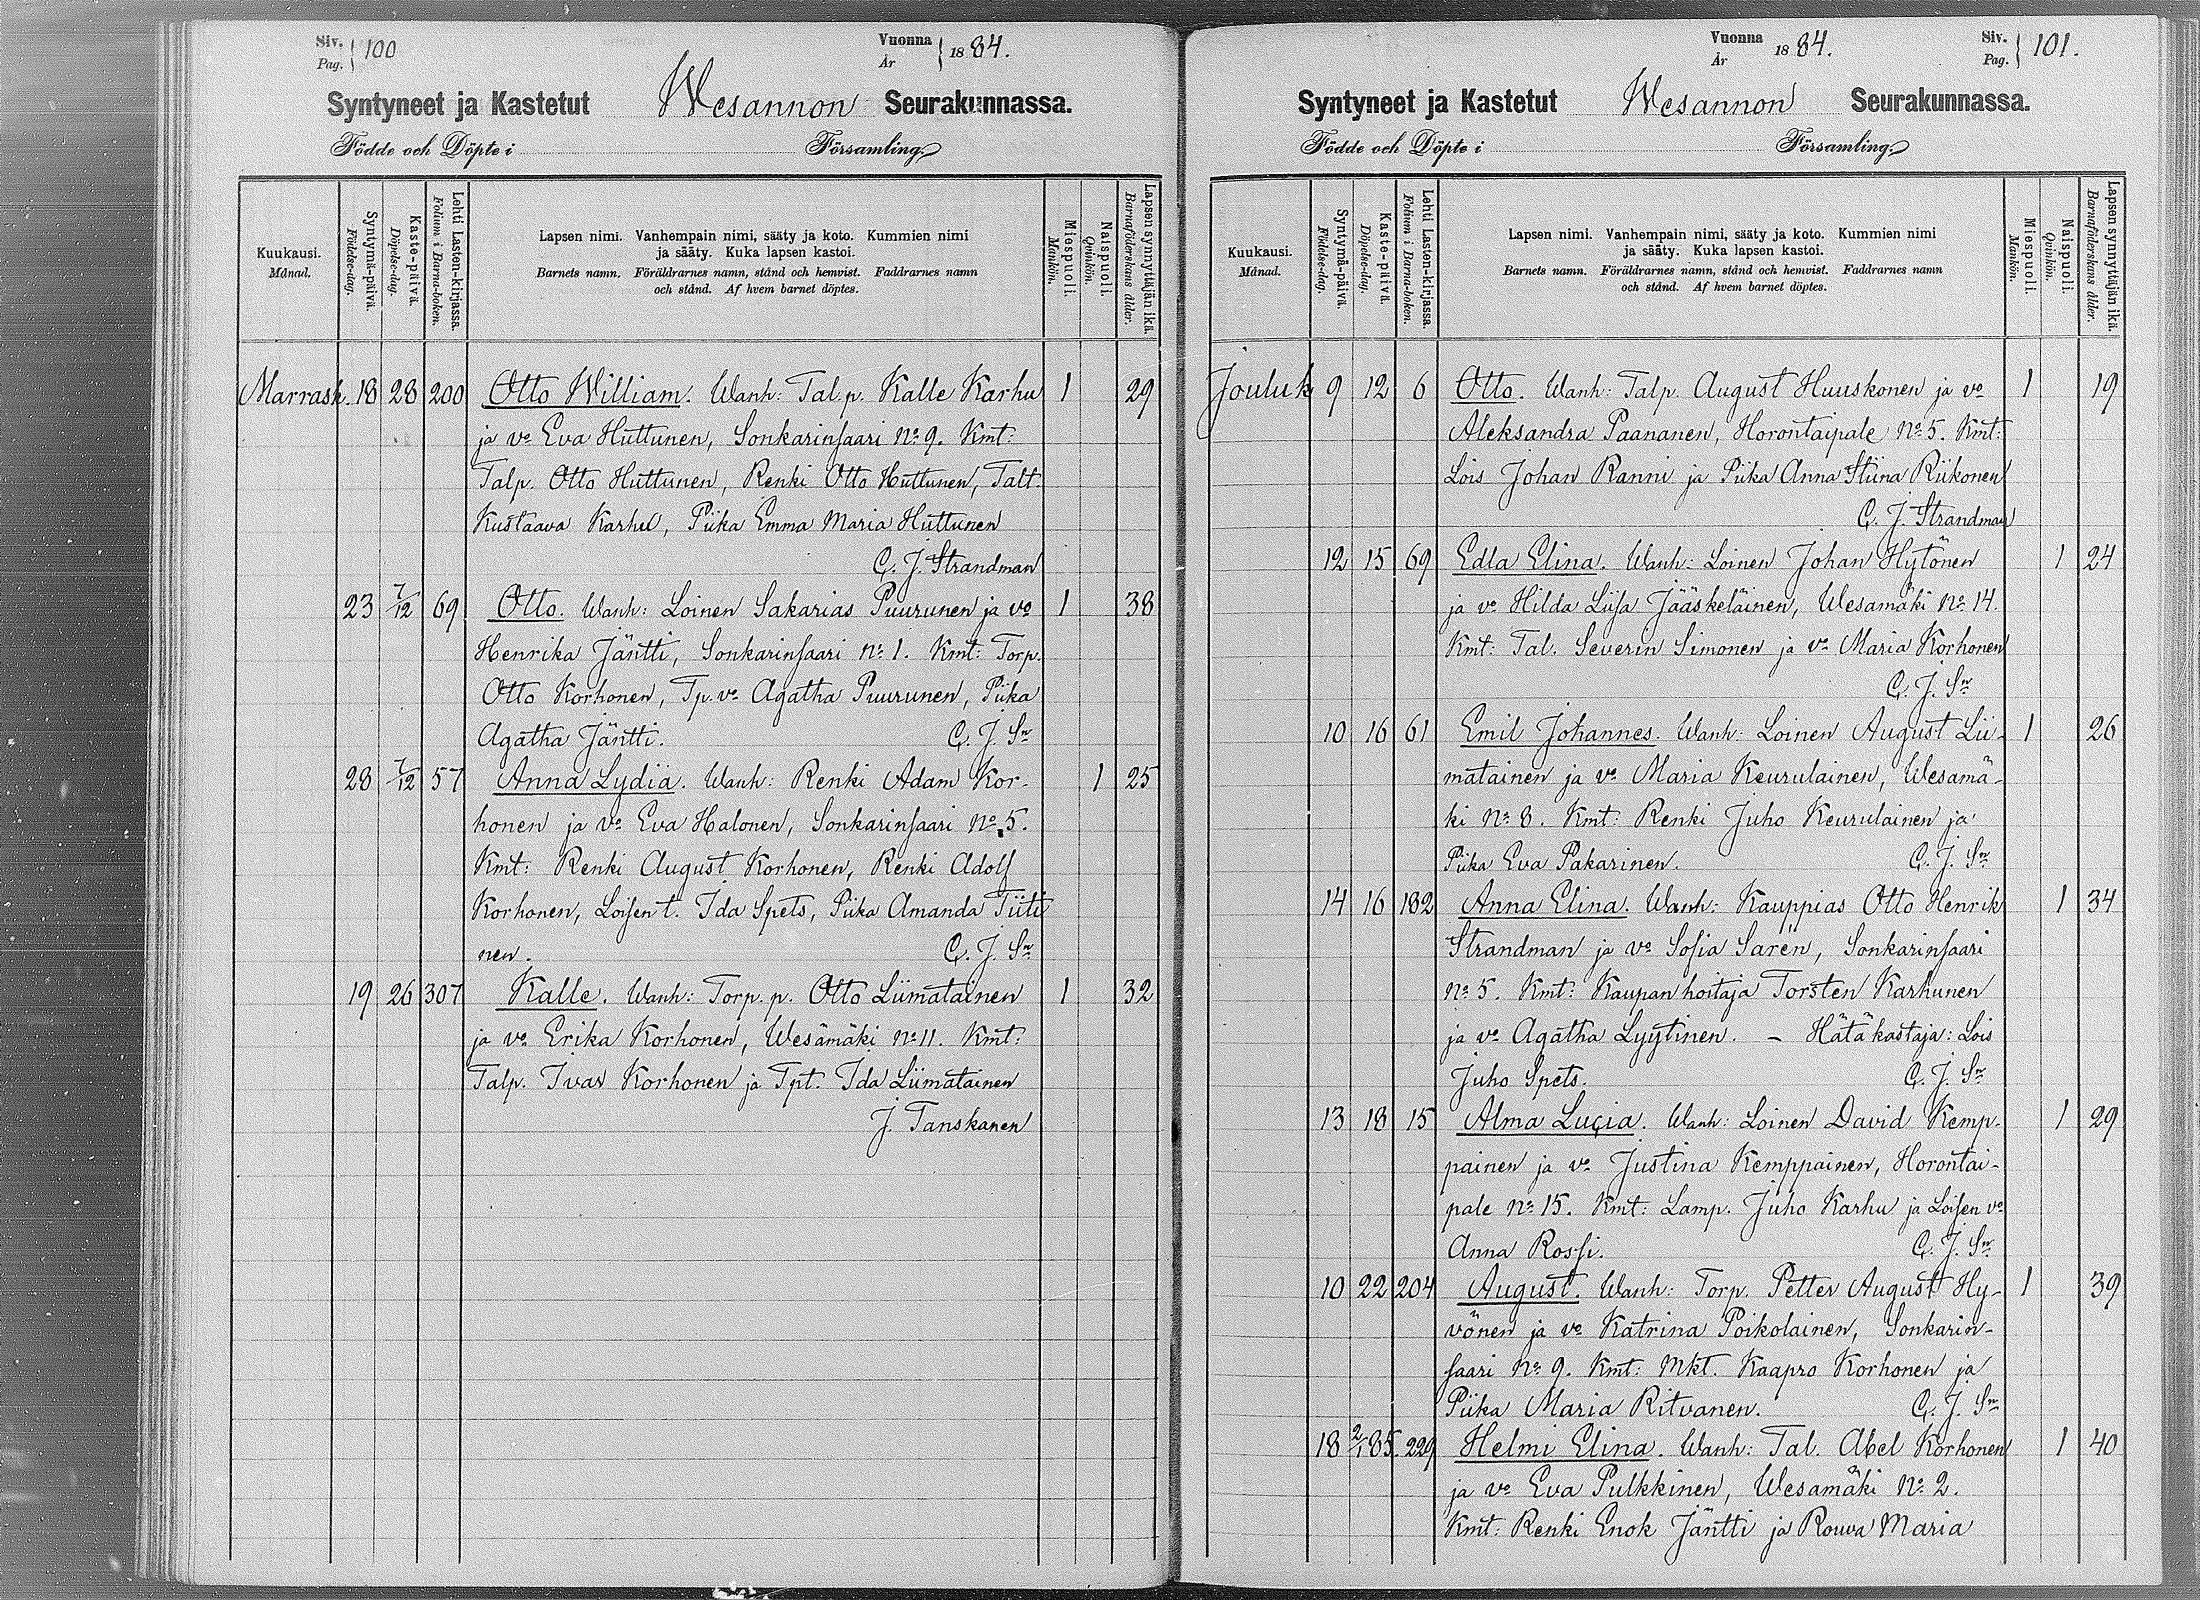 Siv. Pag. 100
Vuonna År 1884.
Syntyneet ja Kastetut Wesannon Seurakunnassa.
Födde och Döpte i Församling
Kuukausi. Månad.
Syntymä-päivä. Födelse-dag.
Kaste-päivä. Döpelse-dag.
Lehti Lasten-kirjassa. Folium i Barna-boken.
Lapsen nimi. Vanhempain nimi, sääty ja koto. Kummien nimi
ja sääty. Kuka lapsen kastoi.
Barnets namn. Föräldrarnes namn, stånd och hemvist. Faddrarnes namn
och stånd. Af hvem barnet döptes.
Miespuoli. Mankön.
Naispuoli. Qvinkön.
Lapsen synnyttäjän ikä. Barnaföderskans ålder.
Marrask. 18 28 200 Otto William. Wanh: Tal.p. Kalle Karhu 1 29
ja vo Eva Huttunen, Sonkarinsaari No 9. Kmt:
Talp. Otto Huttunen, Renki Otto Huttunen, Talt.
Kustaava Karhu, Piika Emma Maria Huttunen
C. J. Strandman
23 7/12 69 Otto. Wanh: Loinen Sakarias Puurunen ja vo 1 38
Henrika Jäntti, Sonkarinsaari No 1. Kmt: Torp.
Otto Korhonen, Tp. vo Agatha Puurunen, Piika
Agatha Jäntti. C. J. Sn
28 7/12 57 Anna Lydia. Wanh: Renki Adam Kor- 1 25
honen ja vo Eva Halonen, Sonkarinsaari No 5.
Kmt: Renki August Korhonen, Renki Adolf
Korhonen, Loisen t. Ida Spets, Piika Amanda Tiiti
nen. C. J. Sn
19 26 307 Kalle. Wanh: Torp. p. Otto Liimatainen 1 32
ja vo Erika Korhonen, Wesämäki No 11. Kmt:
Talp. Ivar Korhonen ja Tpt. Ida Liimatainen
J. Tanskanen
Vuonna År 1884.
Siv. Pag. 101.
Syntyneet ja Kastetut Wesannon Seurakunnassa.
Födde och Döpte i Församling.
Kuukausi. Månad.
Syntymä-päivä. Födelse-dag.
Kaste-päivä. Döpelse-dag.
Lehti Lasten-kirjassa. Folium i Barna-boken.
Lapsen nimi. Vanhempain nimi, sääty ja koto. Kummien nimi
ja sääty. Kuka lapsen kastoi.
Barnets namn. Föräldrarnes namn, stånd och hemvist. Faddrarnes namn
och stånd. Af hvem barnet döptes.
Miespuoli. Mankön.
Naispuoli. Qvinkön.
Lapsen synnyttäjän ikä. Barnaföderskans ålder.
Jouluk 9 12 6 Otto. Wanh: Talp. August Huuskonen ja vo 1 19
Aleksandra Paananen, Horontaipale No 5. Kmt:
Lois Johan Ranni ja Piika Anna Stiina Riikonen
C. J. Strandman
12 15 69 Edla Elina. Wanh: Loinen Johan Hytönen 1 24
ja vo Hilda Liisa Jääskeläinen, Wesamäki No 14.
Kmt: Tal. Severin Simonen ja vo Maria Korhonen
C. J. Sn
10 16 61 Emil Johannes. Wanh: Loinen August Lii- 1 26
matainen ja vo Maria Keurulainen, Wesamä-
ki No 8. Kmt: Renki Juho Keurulainen ja
Piika Eva Pakarinen. C. J. Sn
14 16 182 Anna Elina. Wanh: Kauppias Otto Henrik 1 34
Strandman ja vo Sofia Saren, Sonkarinsaari
No 5. Kmt: Kaupanhoitaja Torsten Karhunen
ja vo Agatha Lyytinen. – Hätäkastaja: Lois
Juho Spets. C. J. Sn
13 18 15 Alma Lucia. Wanh: Loinen David Kemp- 1 29
painen ja vo Justina Kemppainen, Horontai-
pale No 15. Kmt: Lamp. Juho Karhu ja Loisen vo
Anna Rossi. C. J. Sn
10 22 204 August. Wanh: Torp. Petter August Hy- 1 39
vönen ja vo Katrina Poikolainen, Sonkarin-
saari No 9. Kmt: Mkt. Kaapro Korhonen ja
Piika Maria Ritvanen. C. J. Sn
18 2/1 85. 229 Helmi Elina. Wanh: Tal. Abel Korhonen 1 40
ja vo Eva Pulkkinen, Wesamäki No 2.
Kmt: Renki Enok Jäntti ja Rouva Maria